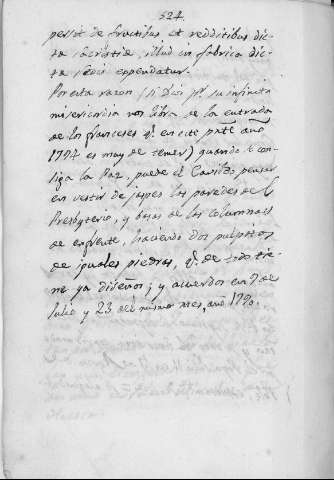 524.
persit de fructibus, et redditibus dic-
tæ sacristiæ, illud in fabrica dic-
tæ sedis expendatur.
Por esta razon, (si Dios pr. su infinita
misericordia nos libra de la entrada
de los franceses q. en este pnte. año
1794 es muy de temer) quando se con-
siga la Paz, puede el Cavildo pensar
en vestir de jaspes las paredes del
Presbyterio, y basas de las columnas
de enfrente, haciendo dos pulpitos
de iguales piedras, q. de todo tie-
ne ya diseños; y acuerdos en 7 de
Julio y 23 del mismo mes, año 1790.